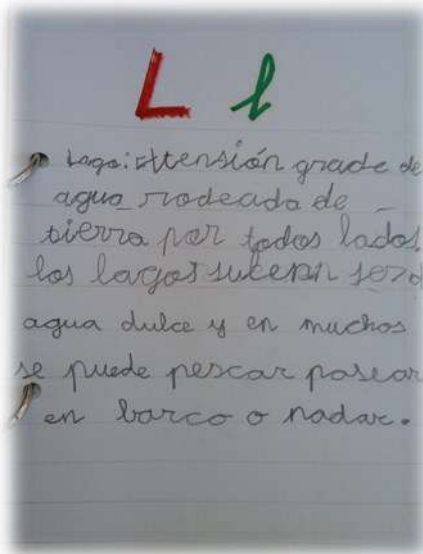 L l
Lago: Extensión grade de
agua rodeada de
tierra por todos lados.
los lagos suelen ser d
agua dulce y en muchos
se puede pescar pasear
en barco o nadar.